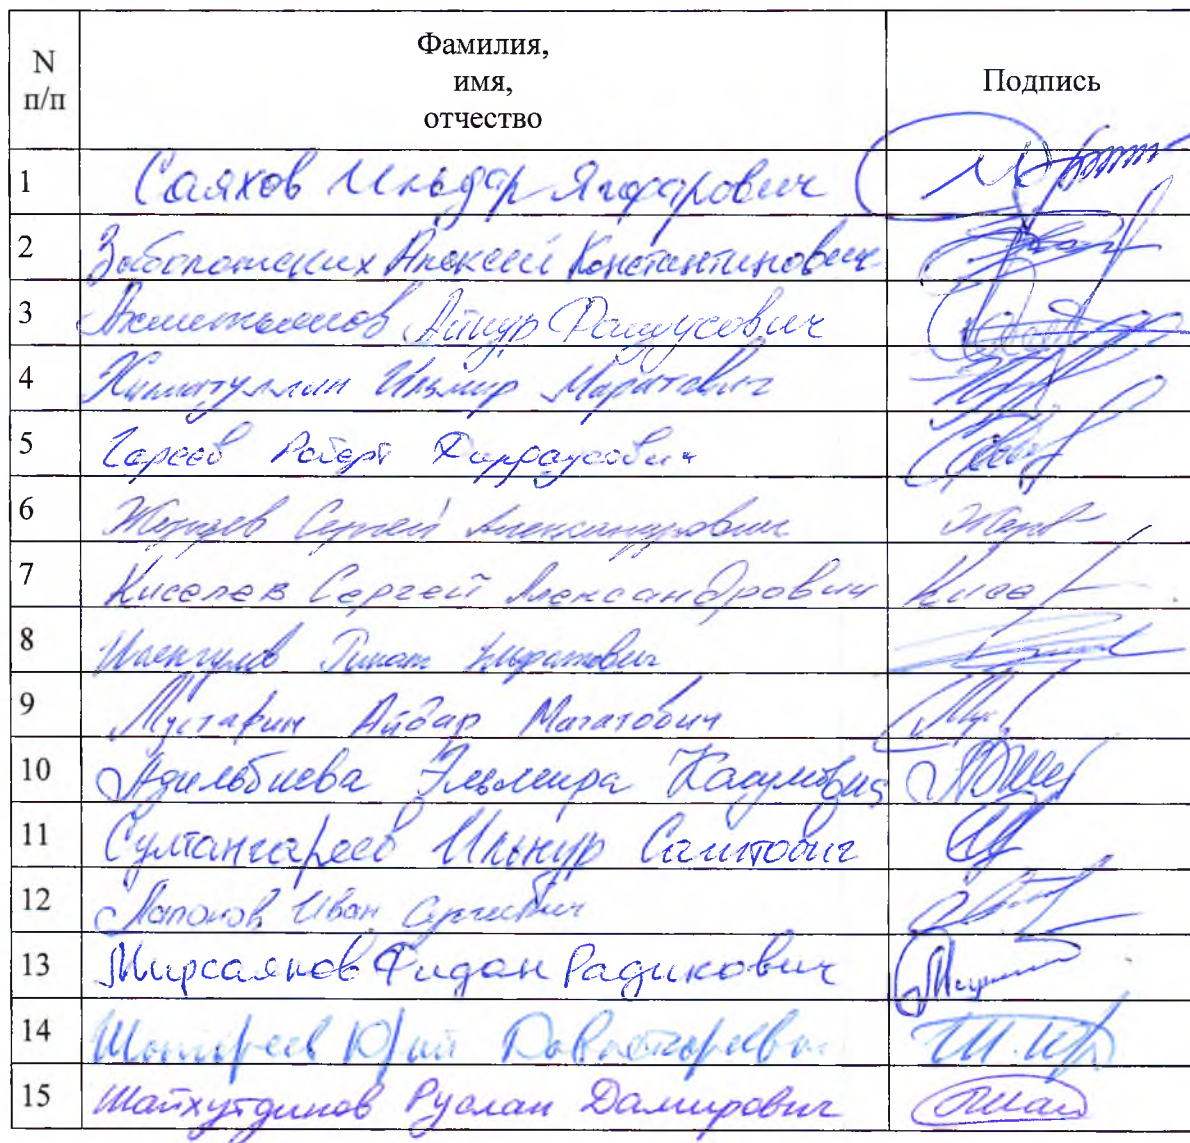 N п/п
Фамилия,
имя,
отчество
Подпись
1 Саяхов Ильдар Ягафарович
2 Заболотских Алексей Константинович
3 Ахметьянов Айнур Фануsович
4 Хикматуллин Ильмир Маратович
5 Гареев Роберт Фирдаусович
6 Сергей Александрович
7 Киселев Сергей Александрович Кисе
8 Ишенгулов Ринат
9 Мустафин Айдар Маратович
10 Адильбиева Эльмира Касумовна
11 Султангареев Ильнур Саитович
12 Иван Сергеевич
13 Мирсаянов Фидан Радикович
14 Юрий Давлетгареевич
15 Шайхутдинов Руслан Дамирович